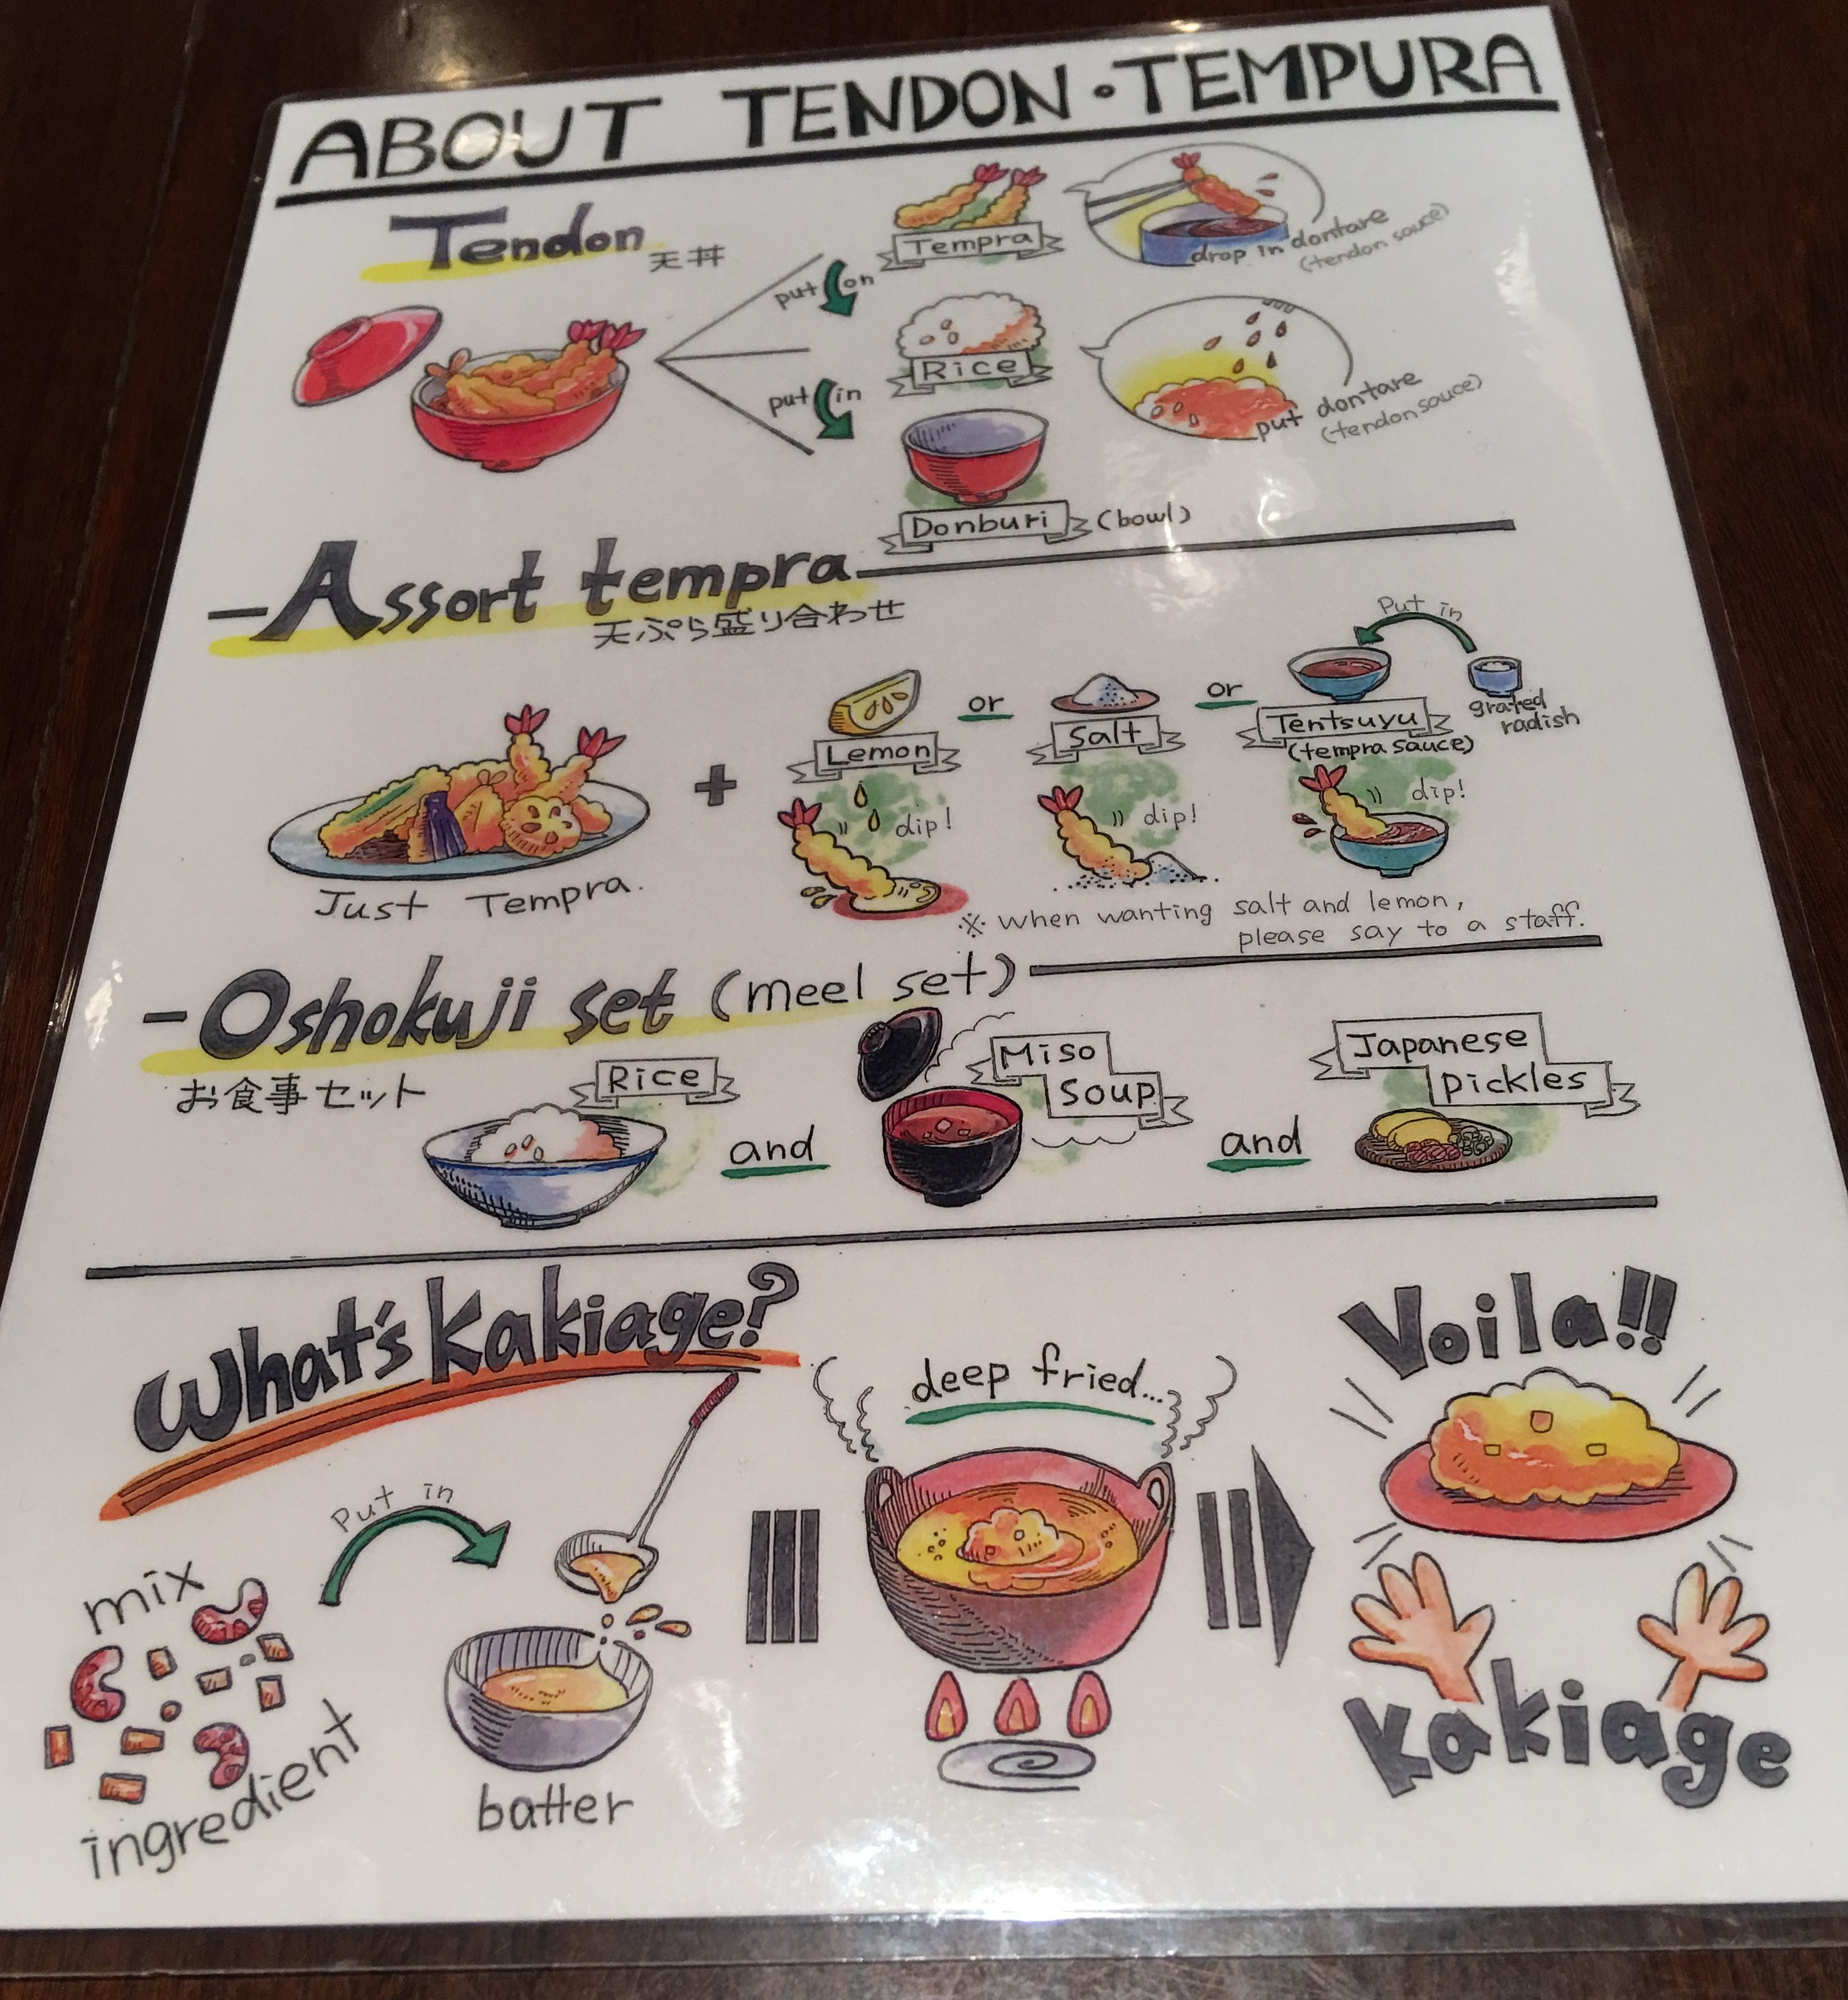 ABOUT TENDON・TEMPURA
Tendon
天丼
put on
put in
Tempra
drop in dontare
(tendon sauce)
Rice
put dontare
(tendon sauce)
Donburi (bowl)
Assort tempra
天ぷら盛り合わせ
Just Tempra.
+
Lemon
dip!
or
Salt
dip!
or
Put in
Tentsuyu
(tempra sauce)
grated
radish
dip!
※ When wanting salt and lemon,
please say to a staff.
Oshokuji set (meel set)
お食事セット
Rice
and
Miso
Soup
and
Japanese
pickles
What's Kakiage?
mix
ingredient
Put in
batter
deep fried...
Voila!!
Kakiage